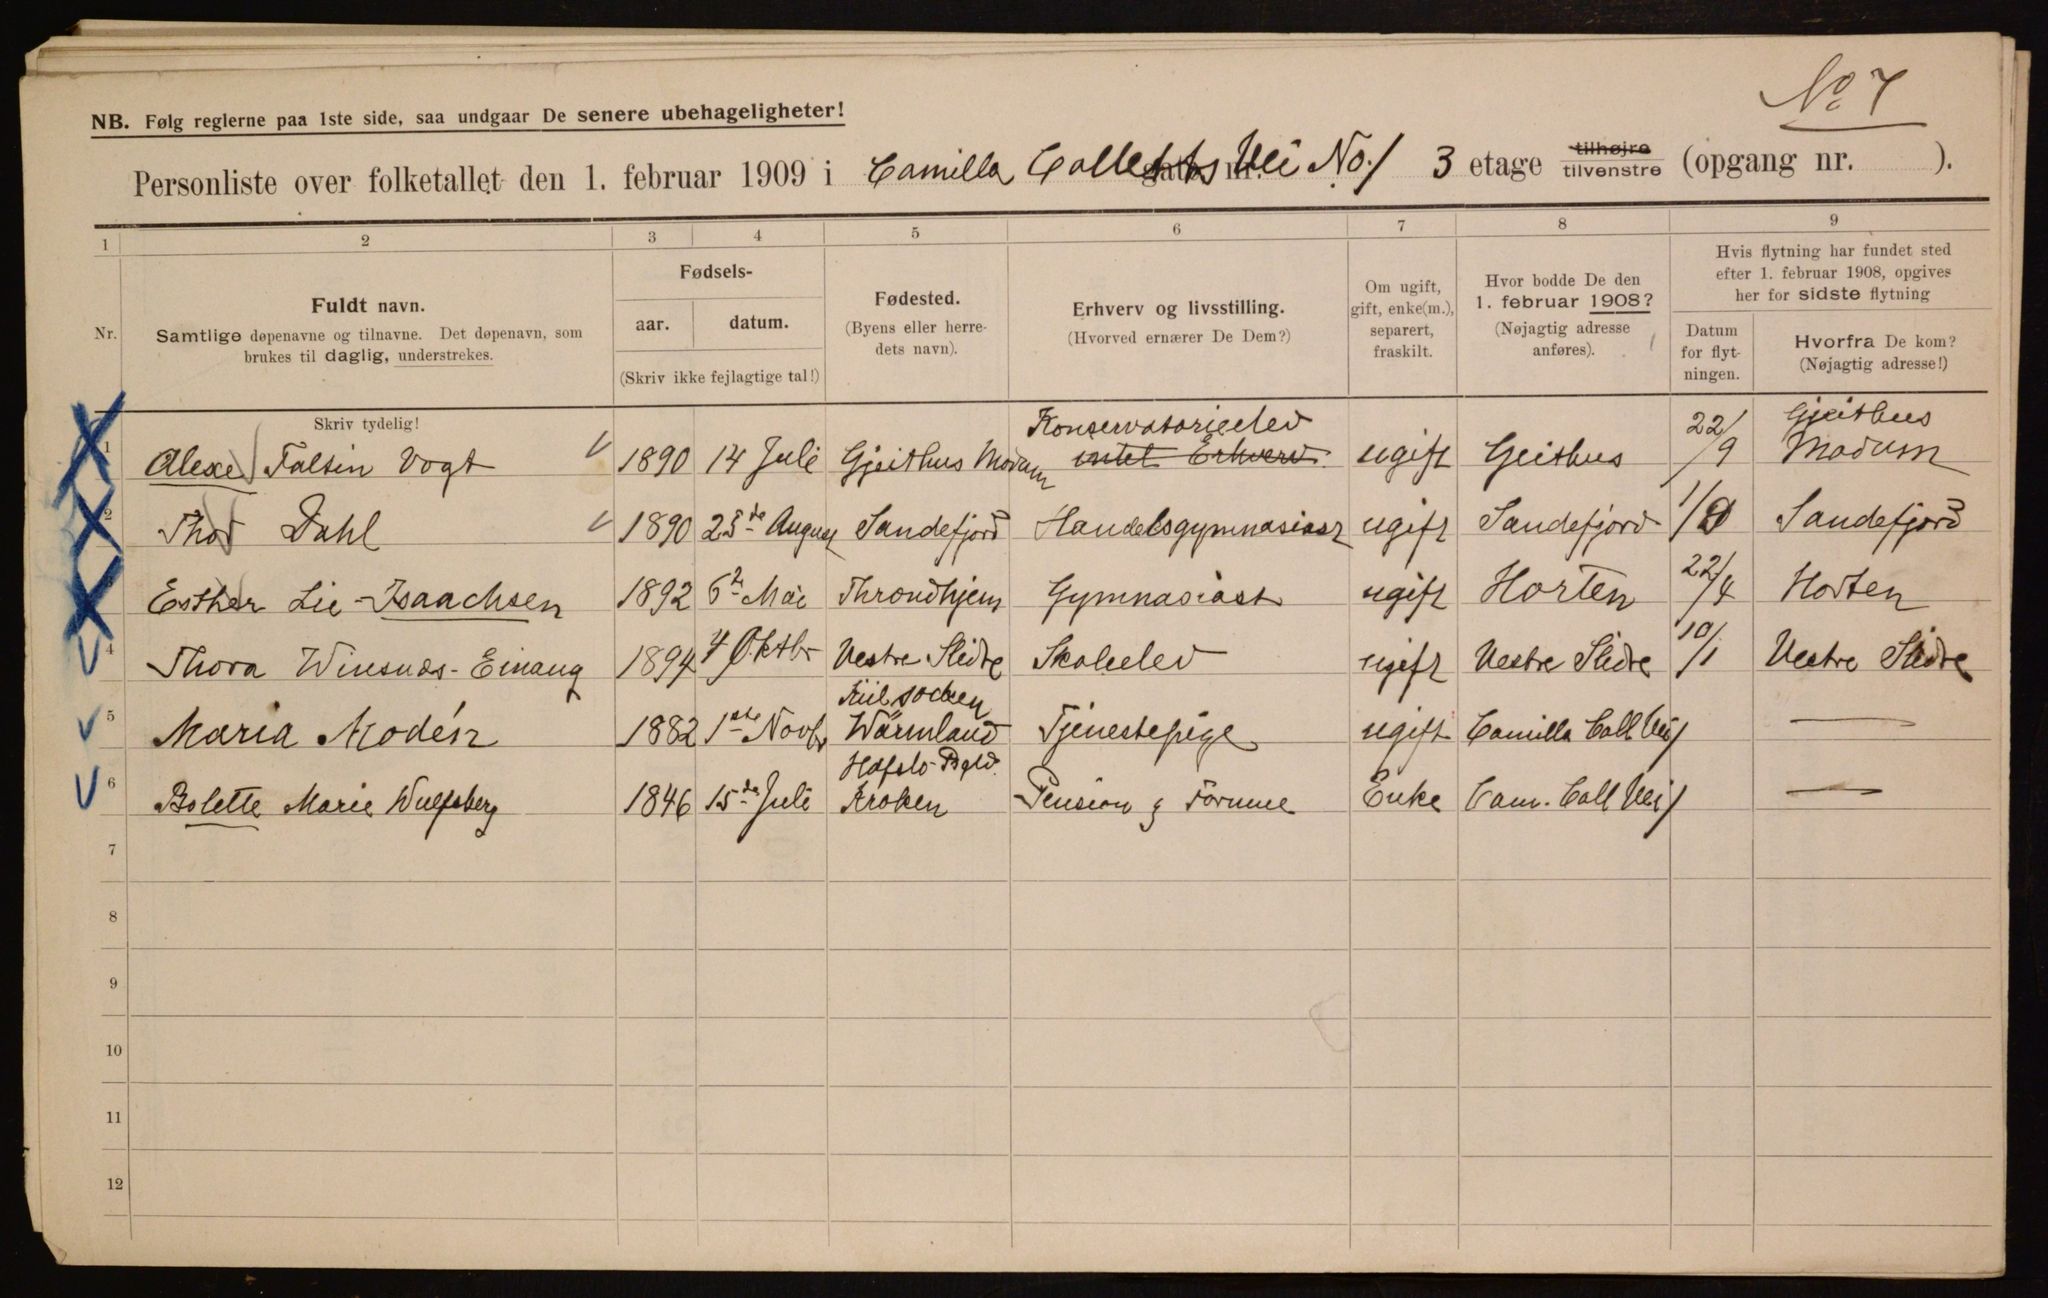 No 7
NB. Følg reglerne paa 1ste side, saa undgaar De senere ubehageligheter!
Personliste over folketallet den 1. februar 1909 i Camilla Colletts Vei No. 1 gate nr. 3 etage tilhøjre tilvenstre (opgang nr. ).
1 2 3 4 5 6 7 8 9
Nr.
Fuldt navn.
Samtlige døpenavne og tilnavne. Det døpenavn, som
brukes til daglig, understrekes.
Fødsels-
aar. datum.
(Skriv ikke fejlagtige tal!)
Fødested.
(Byens eller herre-
dets navn).
Erhverv og livsstilling.
(Hvorved ernærer De Dem?)
Om ugift,
gift, enke(m.),
separert,
fraskilt.
Hvor bodde De den
1. februar 1908?
(Nøjagtig adresse
anføres).
Hvis flytning har fundet sted
efter 1. februar 1908, opgives
her for sidste flytning
Datum
for flyt-
ningen.
Hvorfra De kom?
(Nøjagtig adresse!)
Skriv tydelig!
Konservatorieelev Gjeithus
1 Alexe Falsen Vogt 1890 14 Juli Gjeithus Modum intet Erhverv ugift Geithus 22/9 Modum
2 Thor Dahl 1890 25de August Sandefjord Handelsgymnasiast ugift Sandefjord 1/9 Sandefjord
Esther Lie-Isaachsen 1892 6 Mai Throndhjem Gymnasiast ugift Horten 22/4 Horten
4 Thora Winsnæs-Einang 1894 4 Oktbr Vestre Slidre Skoleelev ugift Vestre Slidre 10/1 Vestre Slidre
Kiil socken
5 Maria Modén 1882 1ste Novbr Wärmland Tjenestepige ugift Camilla Coll Vei 1 —
Hafslo Pgld.
6 Bolette Marie Wulfsberg 1846 15de Juli Kroken Pension g Formue Enke Cam. Coll Vei 1 —
7
8
9
10
11
12